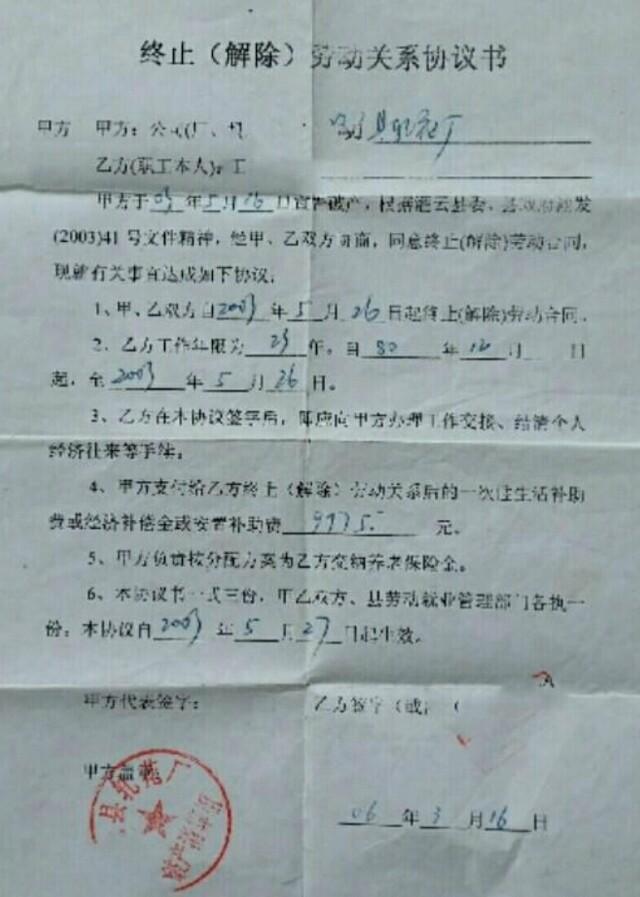 终止（解除）劳动关系协议书
甲方 甲方：公司(厂、
乙方(职工本人)：
甲方于03年5月16日宣告破产，根据灌云县委、县政府灌发
(2003)41号文件精神，经甲、乙双方协商，同意终止(解除)劳动合同，
现就有关事宜达成如下协议：
1、甲、乙双方自2003年5月26日起终止(解除)劳动合同。
2、乙方工作年限为23年，自80年12月 日
起，至2003年5月26日。
3、乙方在本协议签字后，即应向甲方办理工作交接、结清个人
经济往来等手续。
4、甲方支付给乙方终止（解除）劳动关系后的一次性生活补助
费或经济补偿金或安置补助费9975.元。
5、甲方负责按分配方案为乙方交纳养老保险金。
6、本协议书一式三份，甲乙双方、县劳动就业管理部门各执一
份，本协议自2003年5月27日起生效。
甲方代表签字： 乙方签字（或
甲方盖章：
县轧花厂
06年3月16日